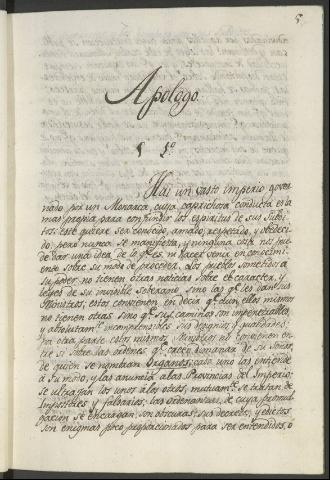 5.
Apologo.
¶ 1º
Hai un vasto imperio gover
nado por un Monarca, cuya caprichosa conducta es la
mas propia para confundir los espiritus de sus Subdi
tos: este quiere ser conocido, amado, respetado, y obedeci
do; pero nunca se manifiesta, y ninguna cosa nos pue
de dar una idea de lo q.e es, ni hacer venir en conocimi
ento sobre su modo de proceder. Los pueblos sometidos a
su poder no tienen otras noticias sobre el caracter, y
leyes de su invisible soberano, sino las q.e les dan sus
Ministros; estos convienen en decir q.e aun ellos mismos
no tienen otras sino q.e sus caminos son impenetrables,
y absolutam.te incomprensibles sus designios, y qualidades:
por otra parte estos mismos Ministros no convienen en
tre si sobre las ordenes q.e creen dimanar de su Señor,
de quien se nombran Organos; cada uno las entiende
à su modo, y las anuncia a las Provincias del Imperio:
se ultrajan los unes à los otros, mutuam.te se tratan de
Impostores y falsarios; las ordenanzas, de cuya promul
gacion se encargan, son obscuras; sus decretos, y edictos
son enigmas poco proporcionados para ser entendidos, o